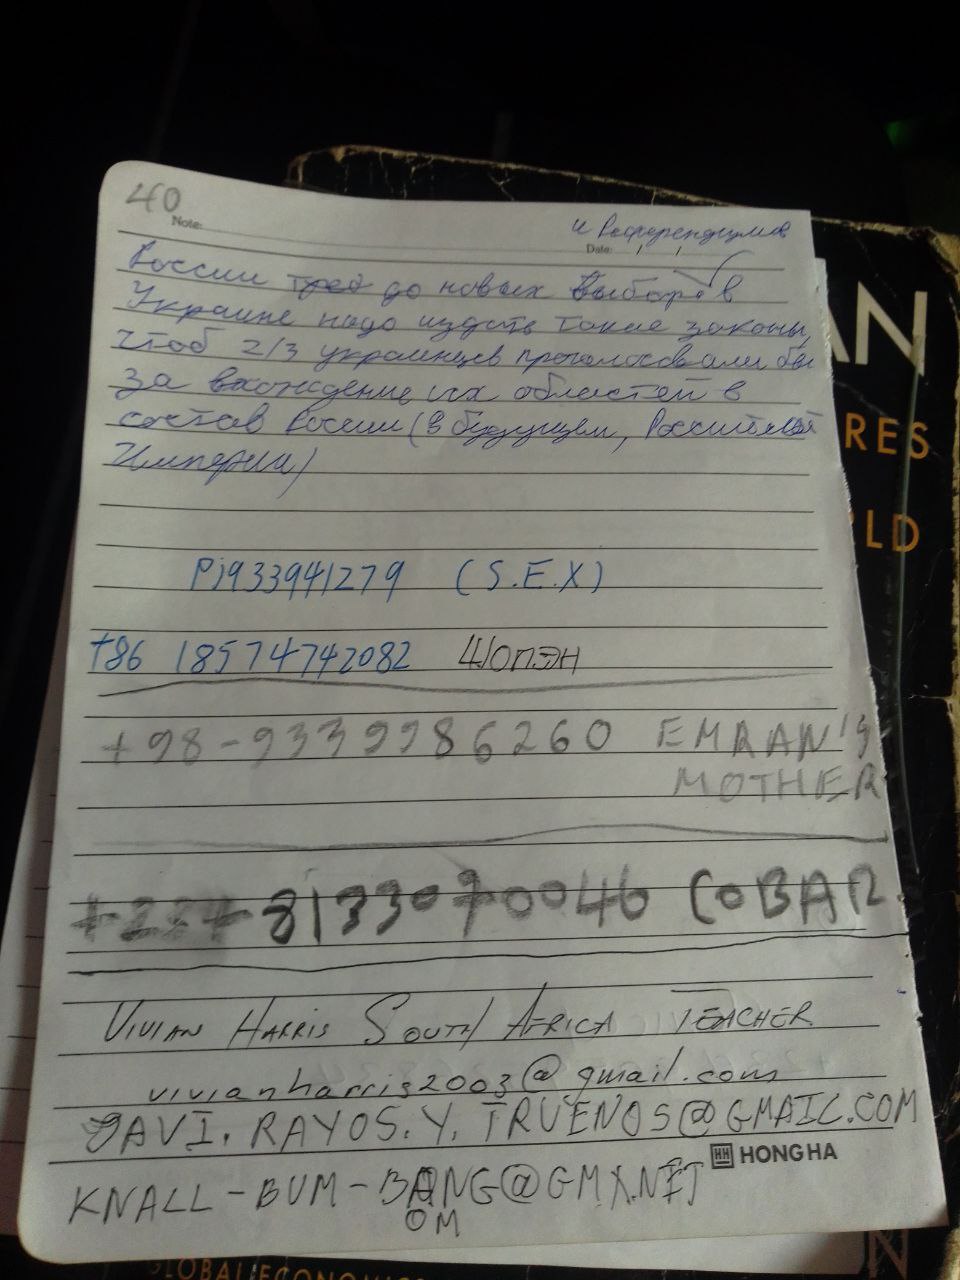 40
Note:
и Референдумов
Date: / /
России до новых выборов в
Украине надо издать такие законы,
чтоб 2/3 украинцев проголосовали бы
за вхождение их областей в
состав России (в будущем, Российской
Империи)
Pj933941279 (S.E.X)
+86 18574742082 ШОПЭН
+98-9339986260 EMRAN'S
MOTHER
8133070046 COBAR.
VIVIAN HARRIS SOUTH AFRICA TEACHER
vivianharris2003@gmail.com
JAVI.RAYOS.Y.TRUENOS@GMAIL.COM
HH HONG HA
KNALL-BUM-BANG@GMX.NET
OM
AN
RES
RLD
N
GLOBAL ECONOMIC